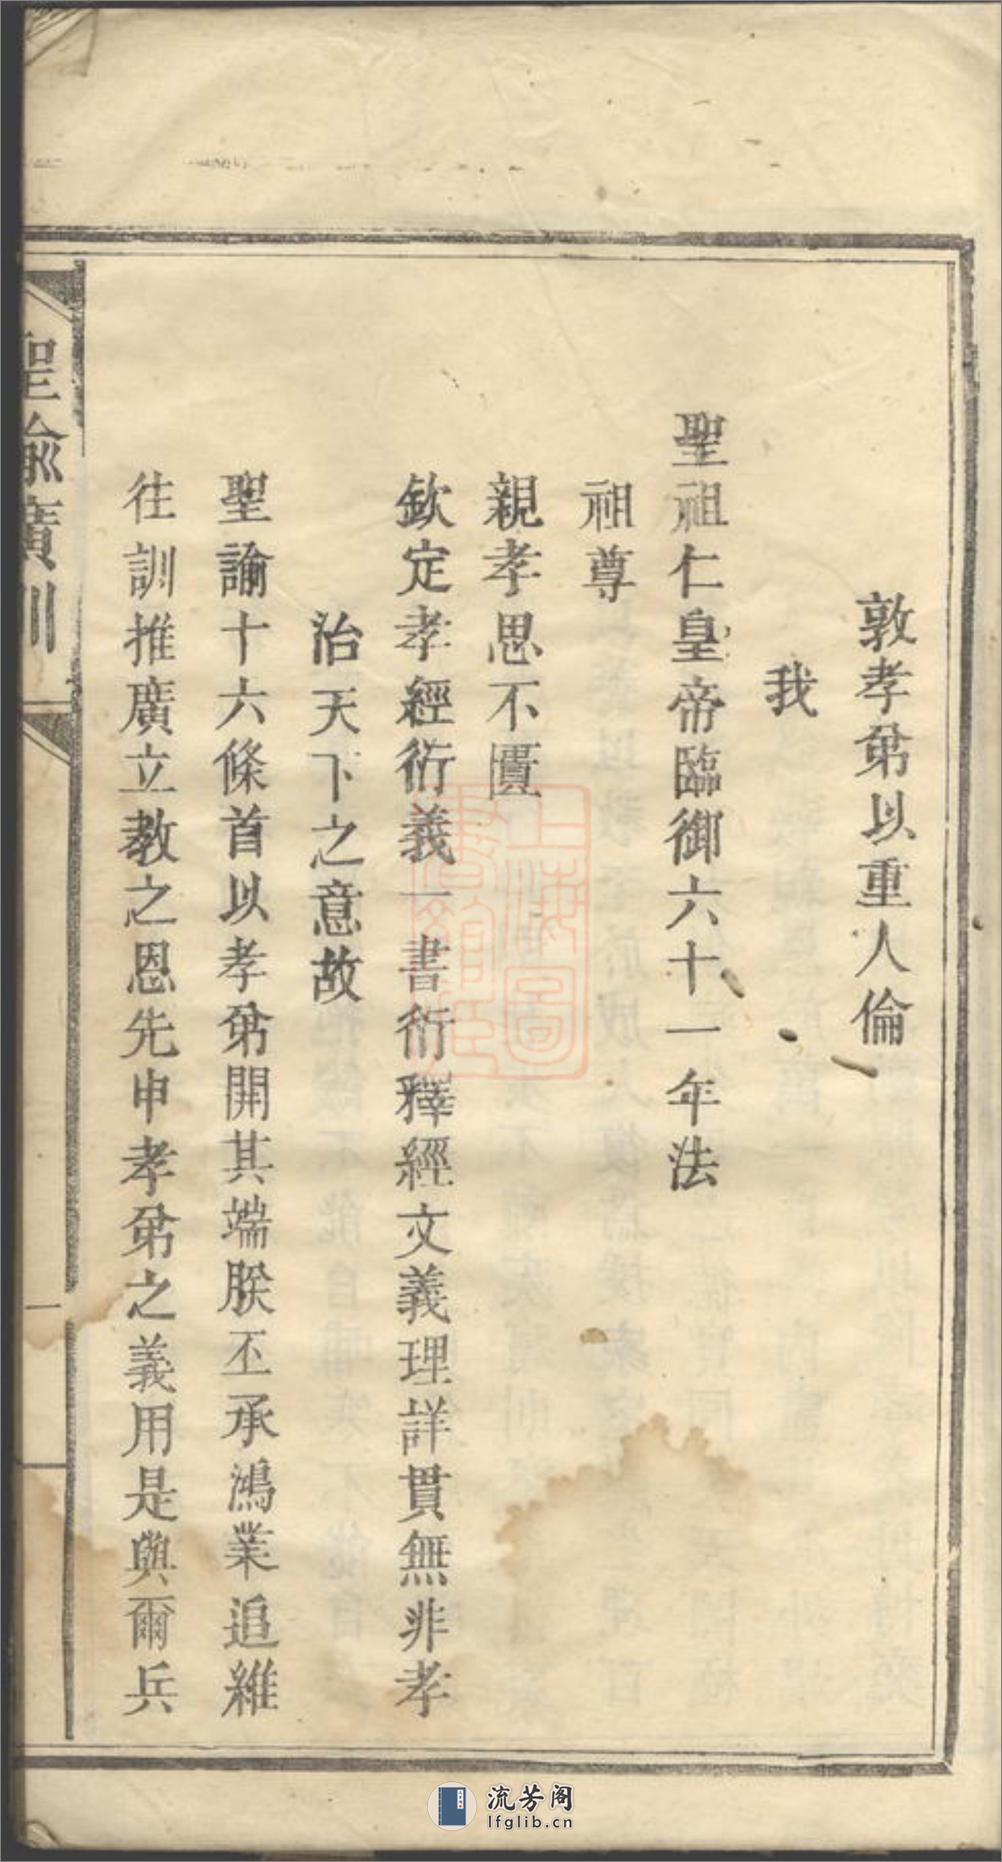 敦孝弟以重人倫
我
聖祖仁皇帝臨御六十一年法
祖尊
親孝思不匱
欽定孝經衍義一書衍釋經文義理詳貫無非孝
治天下之意故
聖諭十六條首以孝弟開其端朕丕承鴻業追維
往訓推廣立教之恩先申孝弟之義用是與爾兵
聖諭廣訓
一
上海圖書館藏
流芳阁
lfglib.cn